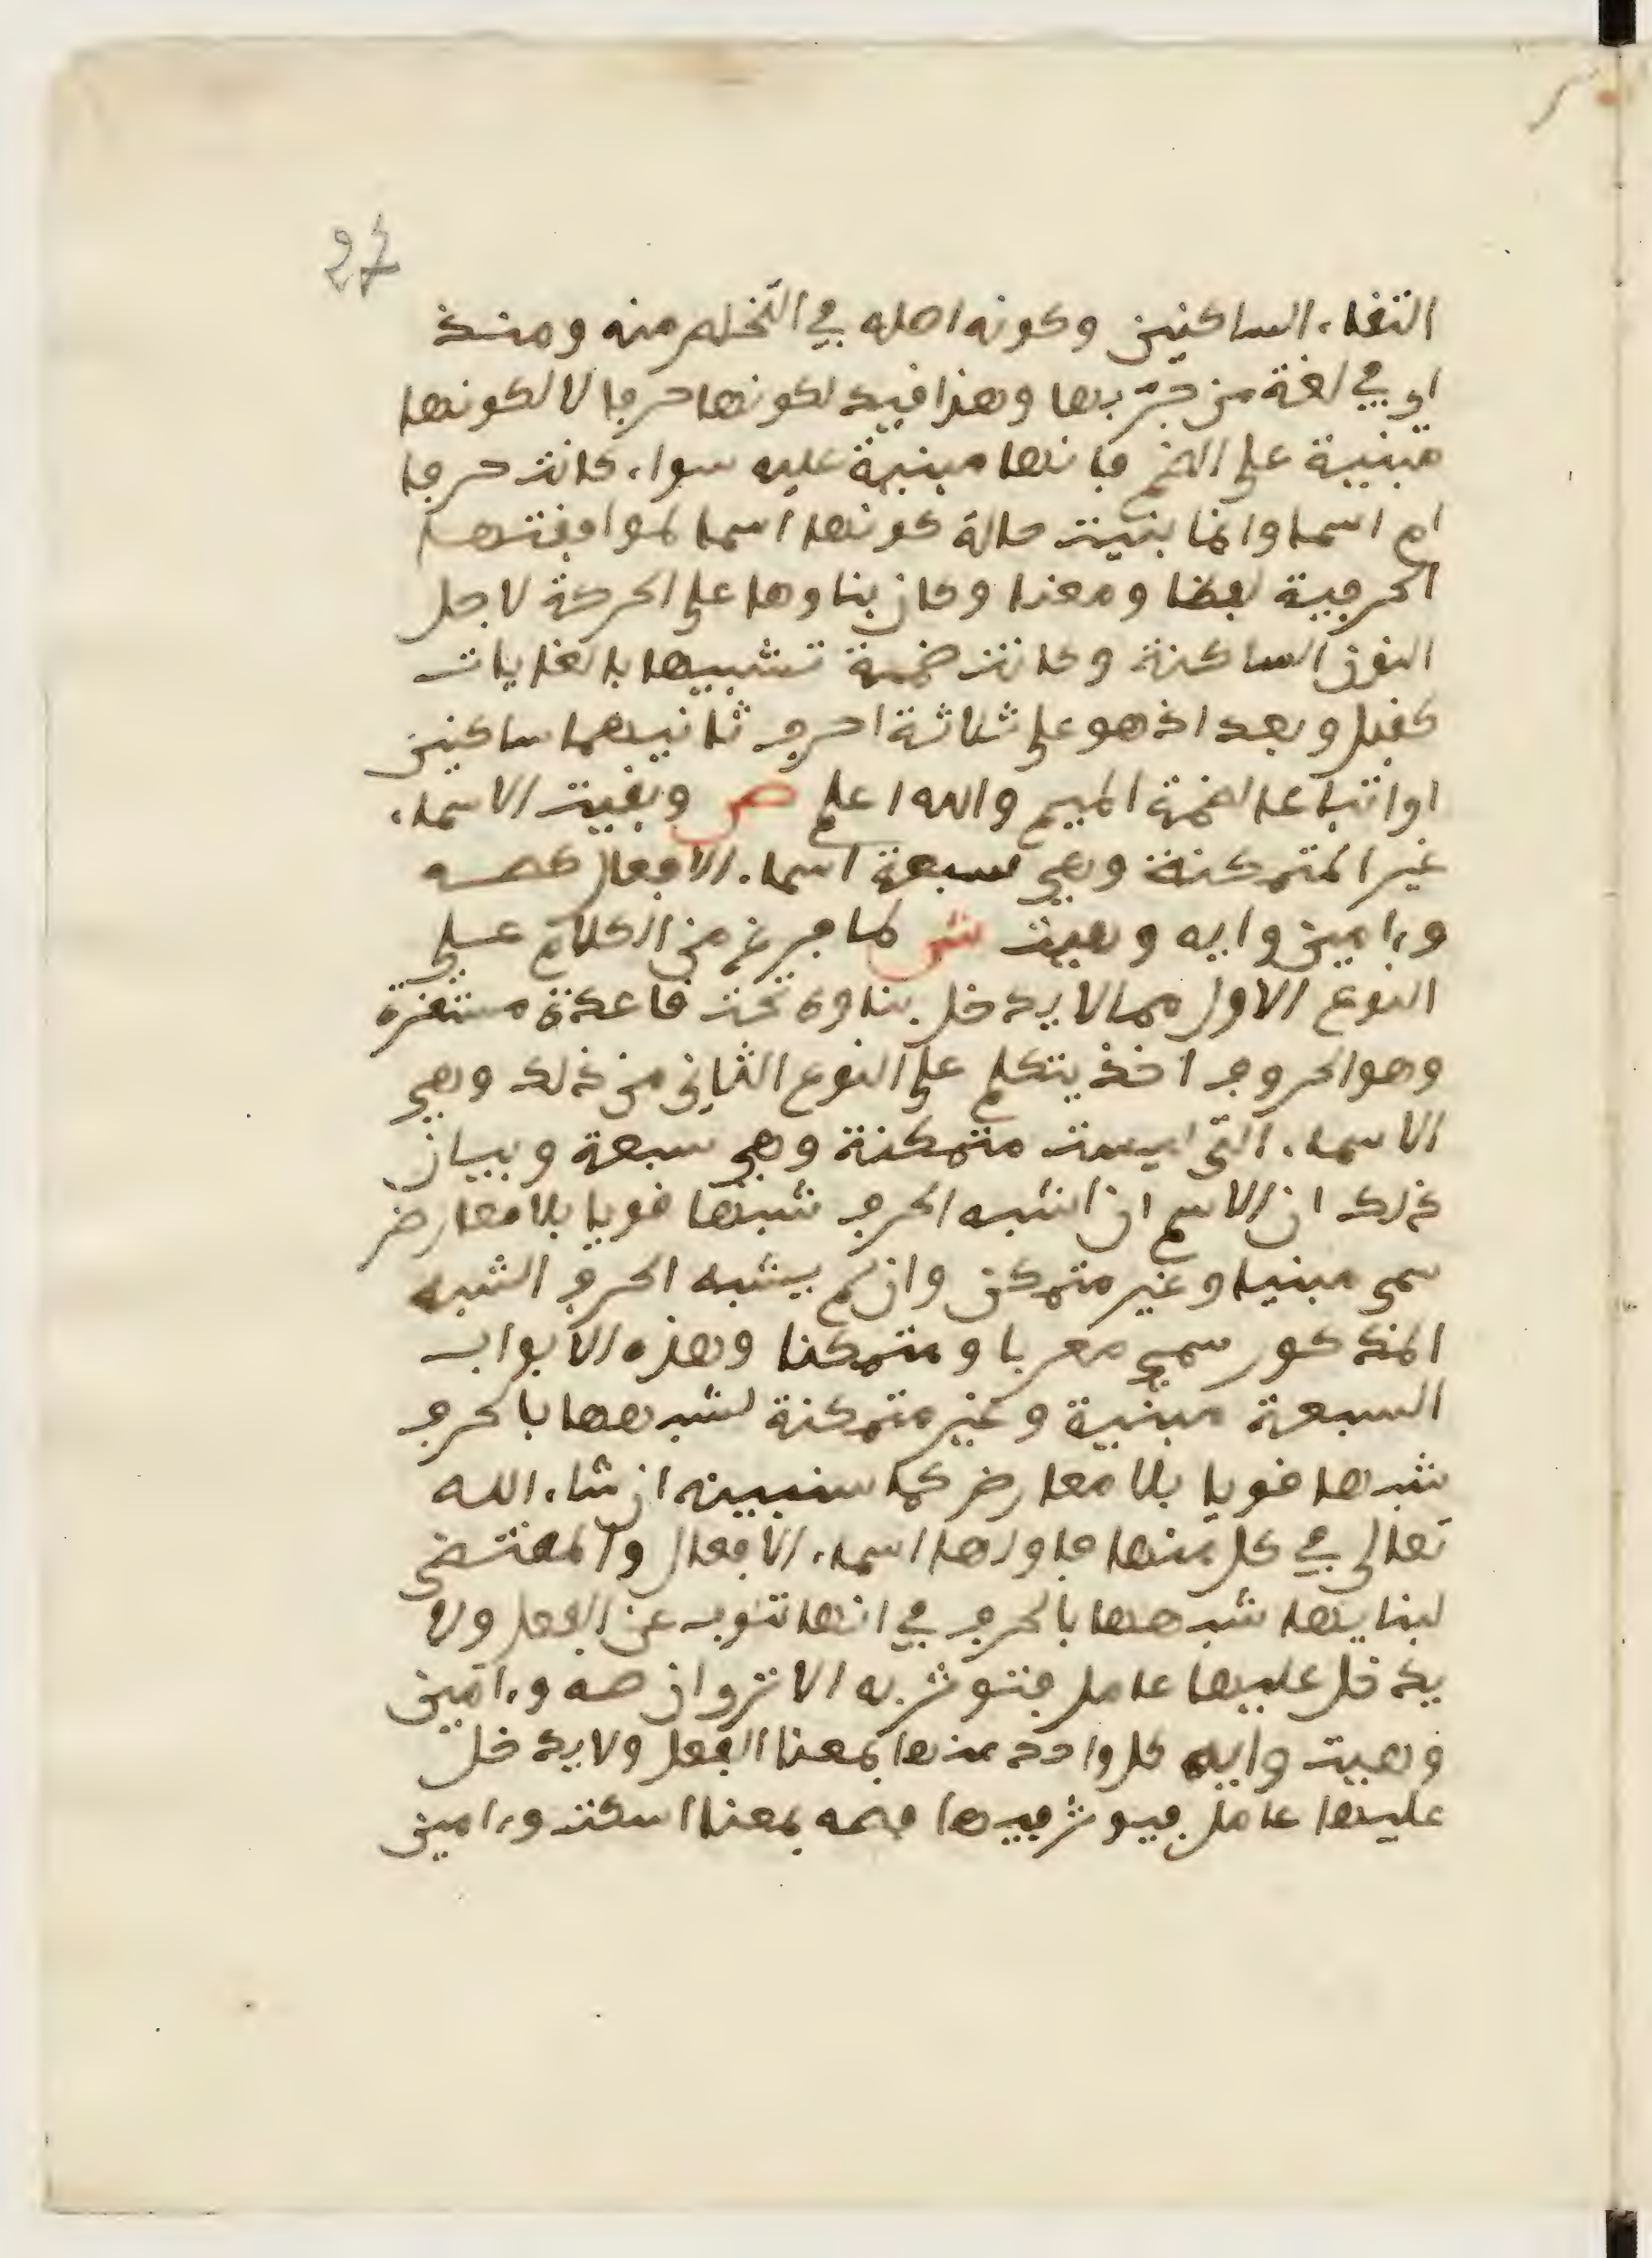 27
التقاء الساكنين وكونه اصله في التخلص منه ومنذ
اي في لغة من جرّ بها وهذا قيد لكونها حرفا لا لكونها
مبنية على الضم فانها مبنية عليه سواء كانت حرفا
ام اسما وانما بنيت حالة كونها اسما لموافقتها
الحرفية لفظا ومعنا وكان بناوها على الحركة لاجل
النون الساكنة وكانت ضمة تشبيها بالغايات
كقبل وبعد اذ هو على ثلاثة احرف ثانيهما ساكنين
او اتباعا لضمة الميم والله اعلم ص وبقيت الاسماء
غير المتمكنة وهي سبعة اسماء الافعال كصه
وءامين وايه وهيت ش لما فرغ من الكلام على
النوع الاول مما لا يدخل بناوه تحت قاعدة مستقرة
وهو الحروف اخذ يتكلم على النوع الثاني من ذلك وهي
الاسماء التي ليست متمكنة وهي سبعة وبيان
ذلك ان الاسم ان اشبه الحرف شبها قويا بلا معارض
سمي مبنيا وغير متمكن وان لم يشبه الحرف الشبه
المذكور سمي معربا ومتمكنا وهذه الابواب
السبعة مبنية وغير متمكنة لشبهها بالحرف
شبها قويا بلا معارض كما سنبينه ان شاء الله
تعالى في كل منها فاولها اسماء الافعال والمقتضي
لبنايها شبهها بالحرف في انها تنوب عن الفعل ولا
يدخل عليها عامل فتوثر به الا ترو ان صه وءامين
وهيت وايه كل واحد منها بمعنا الفعل ولا يدخل
عليها عامل فيوثر فيها فصه بمعنا اسكت وءامين